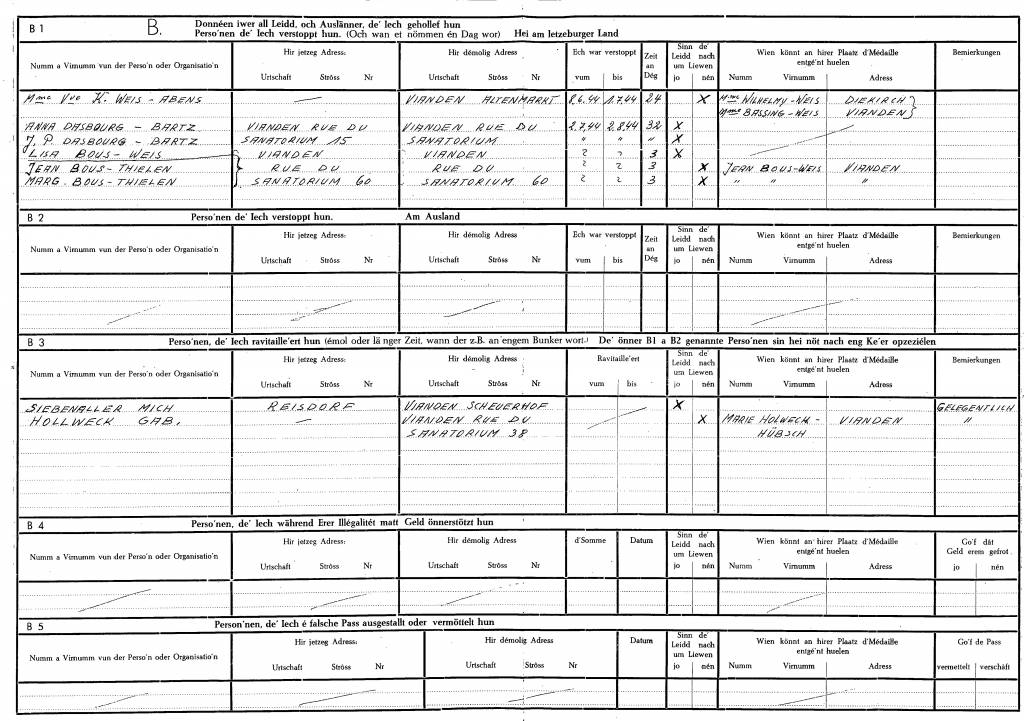 B 1 B. Donnéen iwer all Leidd, och Auslänner, de' Iech gehollef hun
Perso'nen de' Iech verstoppt hun. (Och wan et nömmen én Dag wor) Hei am letzeburger Land
Numm a Virnumm vun der Perso'n oder Organisatio'n Hir jetzeg Adress: Hir démolig Adress: Ech war verstoppt Zeit an Dég Sinn de' Leidd nach um Liewen Wien könnt an hirer Plaatz d'Médaille entgé'nt huelen Bemierkungen
Urtschaft Ströss Nr Urtschaft Ströss Nr vum bis jo nén Numm Virnumm Adress
Mme Vve K. WEIS - ABENS — VIANDEN ALTENMARKT 8.6.44 1.7.44 24 X Mme WILHELMY-WEIS DIEKIRCH
Mme BASSING-WEIS VIANDEN
ANNA DASBOURG - BARTZ VIANDEN RUE DU VIANDEN RUE DU 2.7.44 2.8.44 32 X
J. P. DASBOURG - BARTZ SANATORIUM 15 SANATORIUM " " " X
LISA BOUS - WEIS VIANDEN VIANDEN ? ? 3 X
JEAN BOUS - THIELEN RUE DU RUE DU ? ? 3 X JEAN BOUS-WEIS VIANDEN
MARG. BOUS - THIELEN SANATORIUM 60 SANATORIUM 60 ? ? 3 X " " "
B 2 Perso'nen de' Iech verstoppt hun. Am Ausland
Numm a Virnumm vun der Perso'n oder Organisatio'n Hir jetzeg Adress: Hir démolig Adress Ech war verstoppt Zeit an Dég Sinn de' Leidd nach um Liewen Wien könnt an hirer Plaatz d'Médaille entgé'nt huelen Bemierkungen
Urtschaft Ströss Nr Urtschaft Ströss Nr vum bis jo nén Numm Virnumm Adress
B 3 Perso'nen, de' Iech ravitaille'ert hun (émol oder länger Zeit, wann der z.B. an engem Bunker wort.) De' önner B1 a B2 genannte Perso'nen sin hei nöt nach eng Ke'er opzeziélen
Numm a Virnumm vun der Perso'n oder Organisatio'n Hir jetzeg Adress: Hir démolig Adress Ravitaille'ert Sinn de' Leidd nach um Liewen Wien könnt an hirer Plaatz d'Médaille entgé'nt huelen Bemierkungen
Urtschaft Ströss Nr Urtschaft Ströss Nr vum bis jo nén Numm Virnumm Adress
SIEBENALLER MICH REISDORF VIANDEN SCHEUERHOF X GELEGENTLICH
HOLLWECK GAB. — VIANDEN RUE DU X MARIE HOLWECK - VIANDEN "
SANATORIUM 38 HÜBSCH
B 4 Perso'nen, de' Iech während Erer Illégalitét matt Geld önnerstötzt hun
Numm a Virnumm vun der Perso'n oder Organisatio'n Hir jetzeg Adress: Hir démolig Adress d'Somme Datum Sinn de' Leidd nach um Liewen Wien könnt an hirer Plaatz d'Médaille entgé'nt huelen Go'f dät Geld erem gefrot
Urtschaft Ströss Nr Urtschaft Ströss Nr jo nén Numm Virnumm Adress jo nén
B 5 Person'nen, de' Iech é falsche Pass ausgestallt oder vermöttelt hun
Numm a Virnumm vun der Perso'n oder Organisatio'n Hir jetzeg Adress: Hir démolig Adress: Datum Sinn de' Leidd nach um Liewen Wien könnt an hirer Plaatz d'Médaille entgé'nt huelen Go'f de Pass
Urtschaft Ströss Nr Urtschaft Ströss Nr jo nén Numm Virnumm Adress vermettelt verschäft